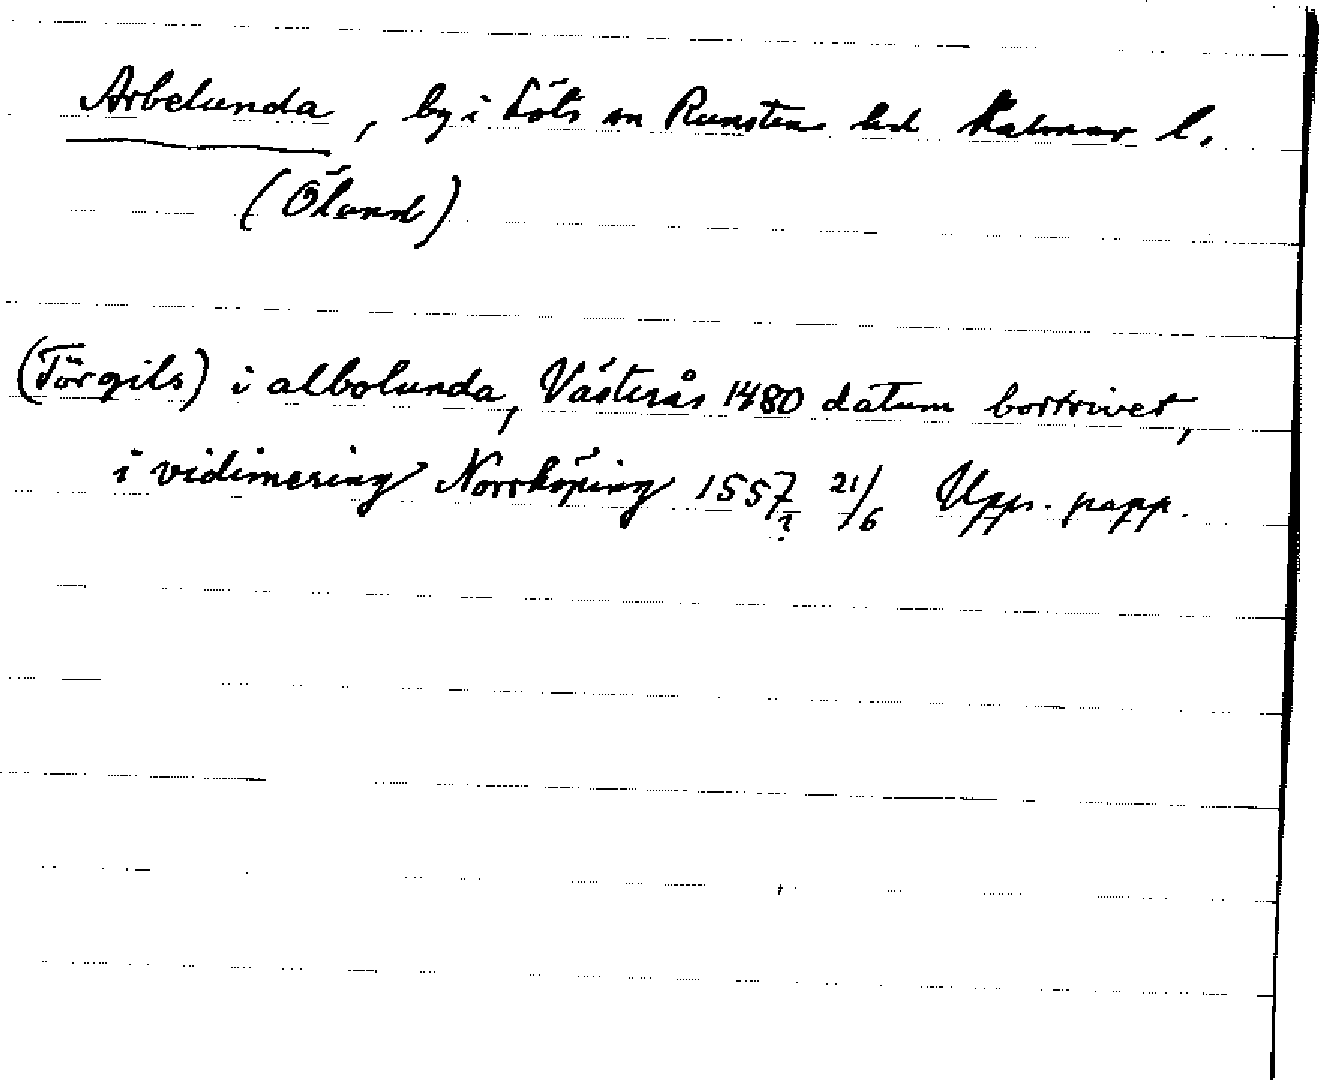 Arbelunda, by i Löts sn Runsten hd Kalmar l.
(Öland)
(Törgils) i albolunda, Västerås 1480 datum bortrivet,
i vidimering Norrköping 1557? 21/6 Upps. papp.